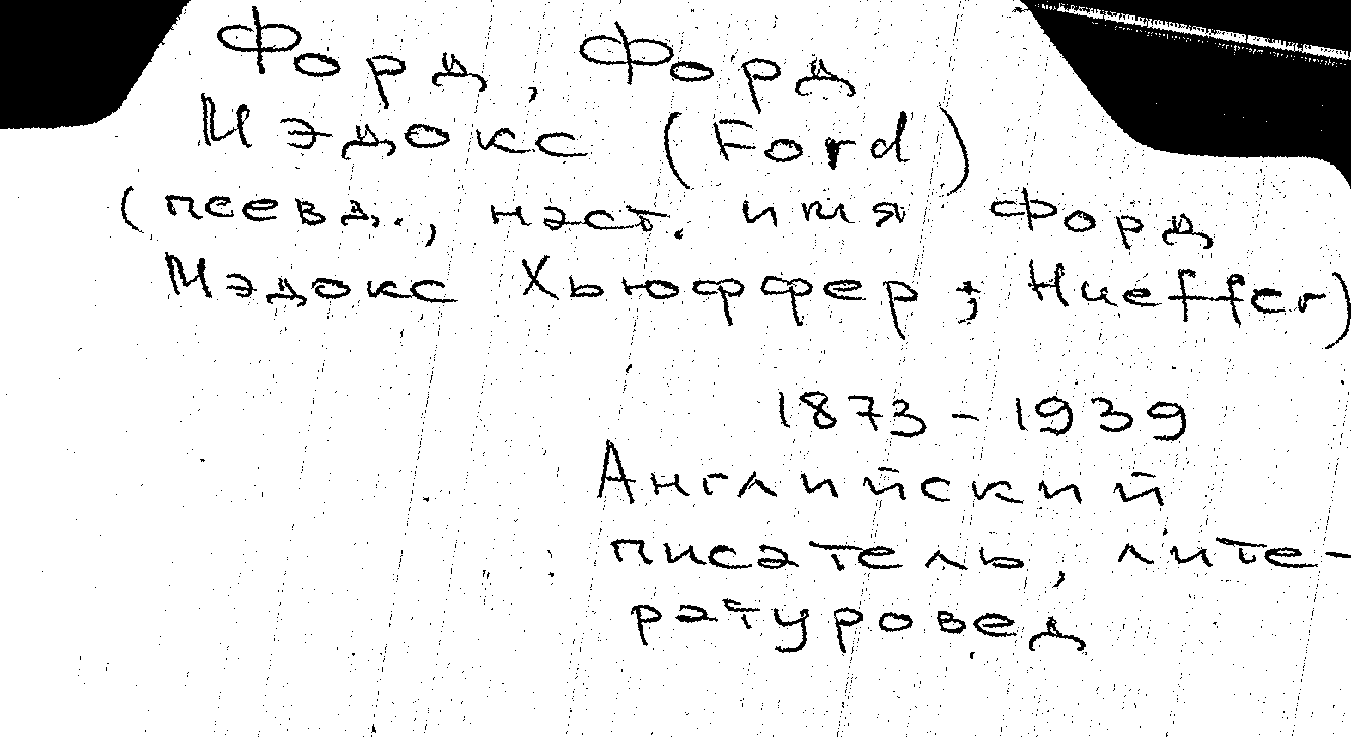 Форд, Форд
Мэдокс (Ford)
(псевд., наст. имя Форд
Мэдокс Хьюффер; Hueffer)
1873-1939
Английский
писатель, лите-
ратуровед